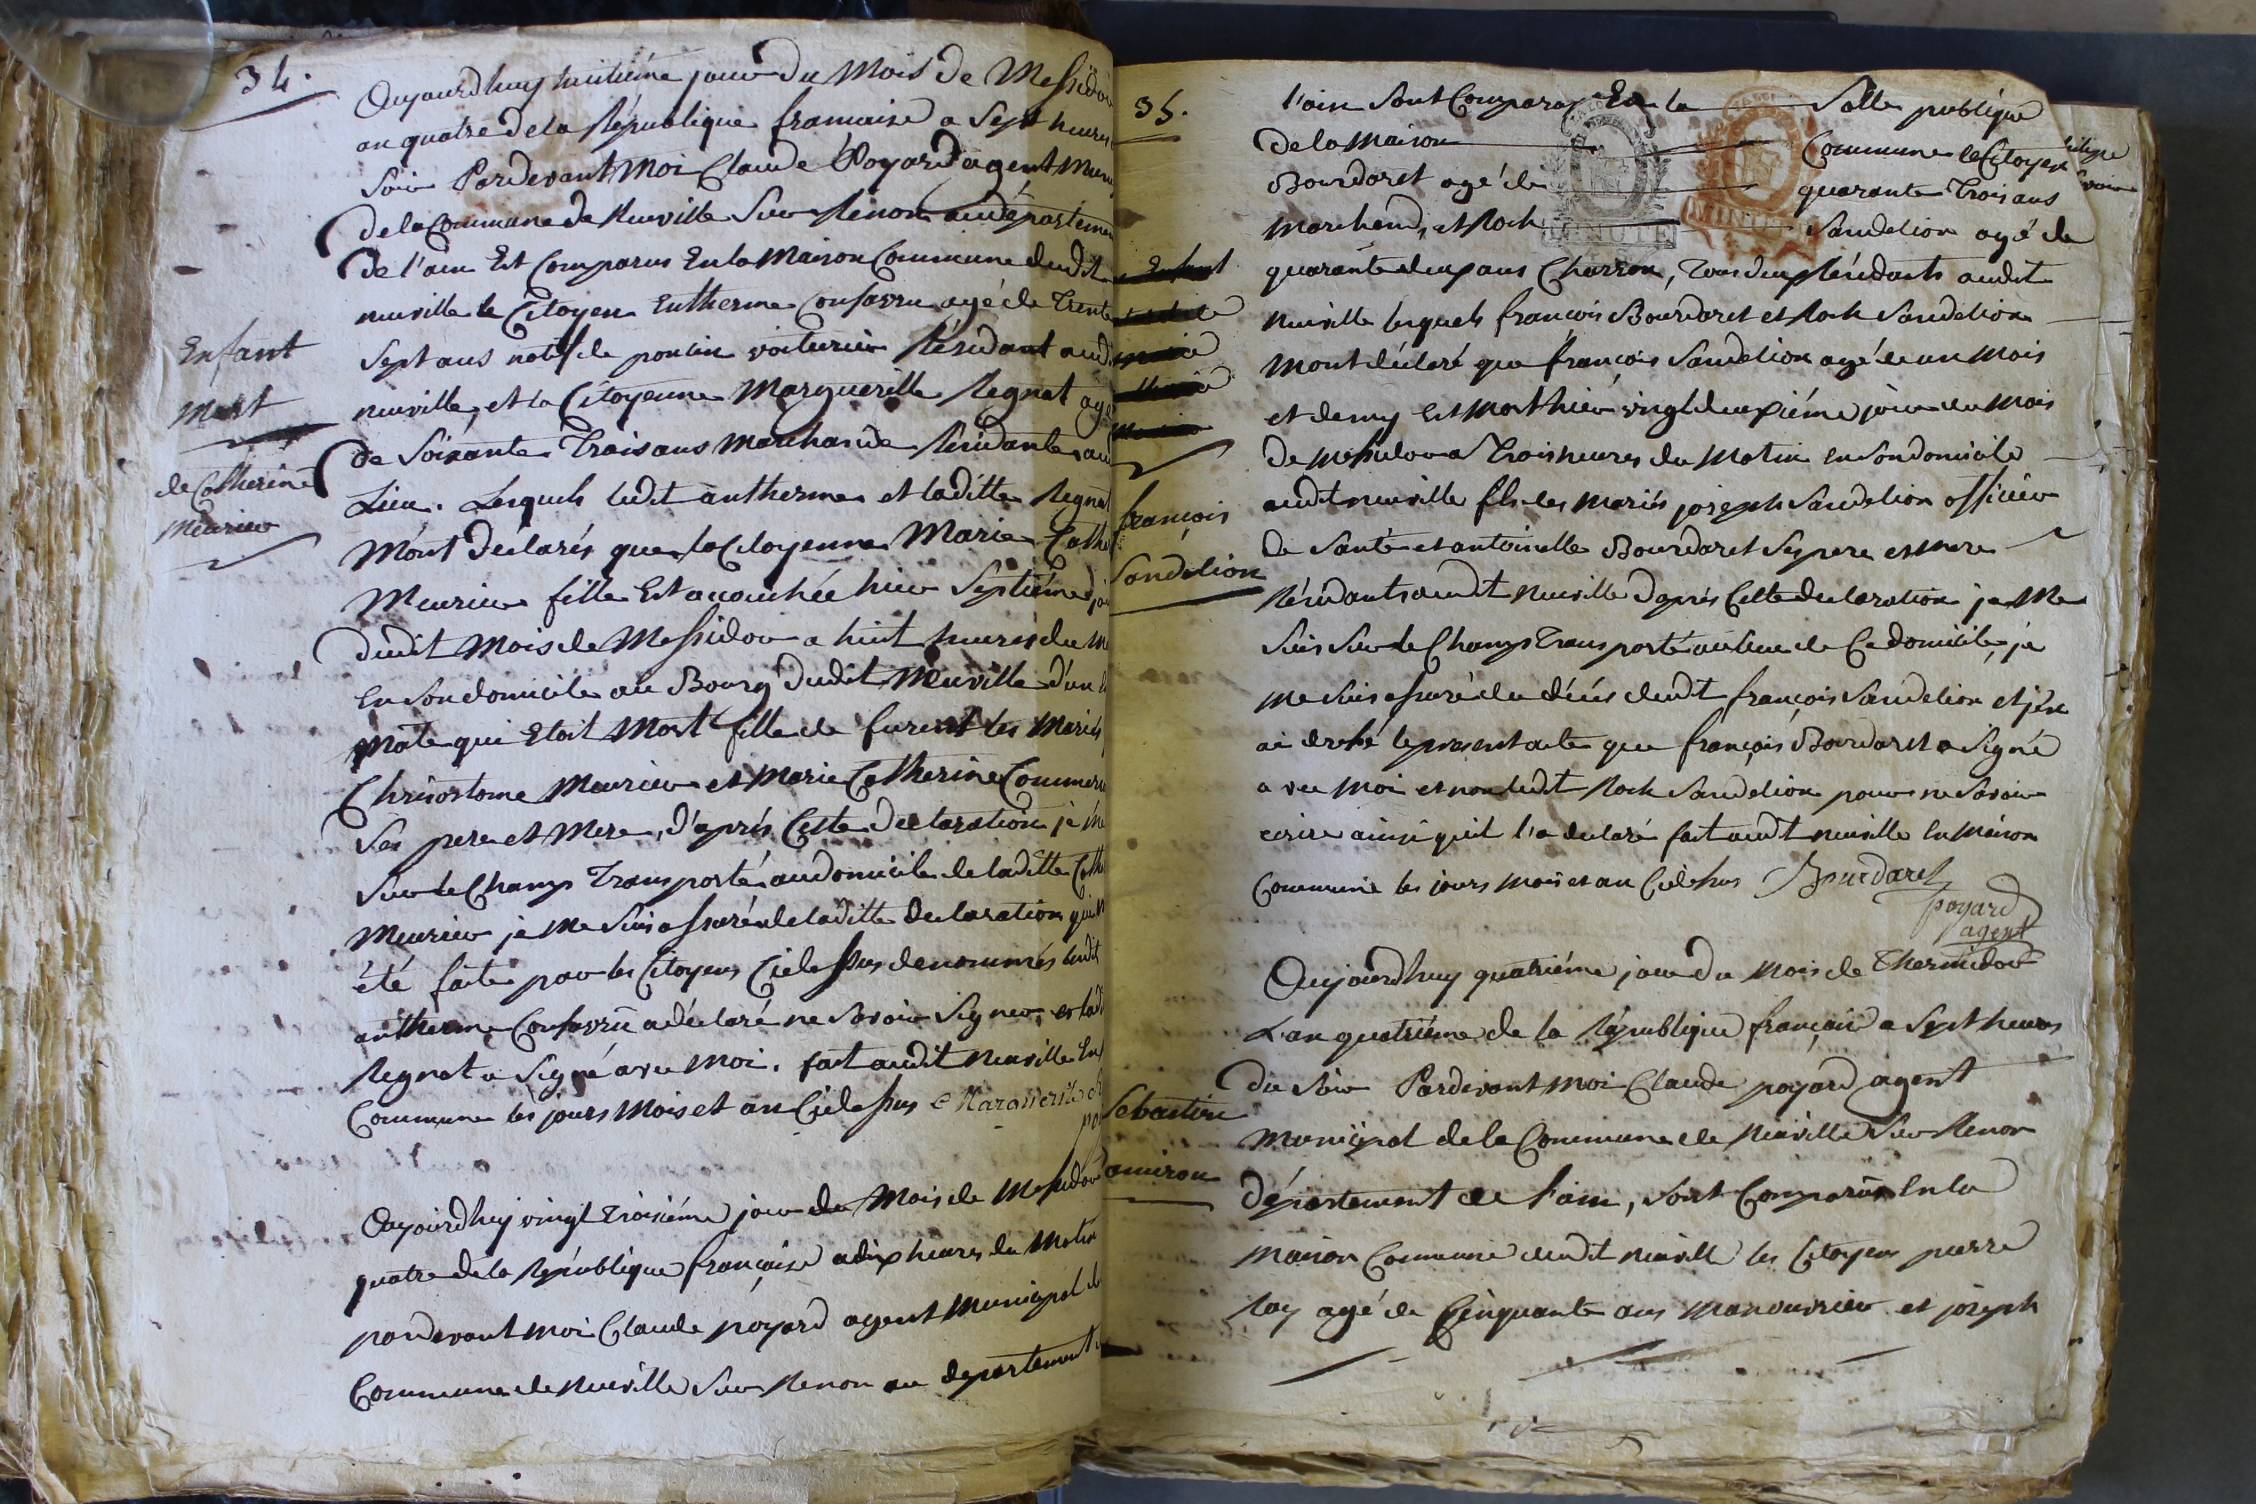 34.
Aujourdhuy huitiéme jour du Mois de Messidor
an quatre de la République francaise a Sept heures
Soir Pardevant Moi Claude Poyard agent Muni
de la Commune de Neuville Sur Renon au département
de l'ain Est Comparus En la Maison Commune dudit
neuville le Citoyen Antherme Confavru agé de Trente
Sept ans natif de poncin voiturier Résidant audi
neuville, et la Citoyenne Margueritte Regnat agé
de Soixante Trois ans marchande Résidante, au
Lieu. Lesquels ledit antherme et laditte Regnat
M'ont Déclarés que la Citoyenne Marie Cathe
Meurier fille Est accouchée hier Septiéme jo
dudit Mois de Messidor a huit heures du m
En Son domicile au Bourg dudit Neuville d'un
Mâle qui Etoit Mort fille de furent les Mariés
Chrisostome Meurier et Marie Catherine Commer
Ses pere et Mere, d'après Cette Déclaration je me
Sur le Champ Transporté au domicile de laditte Cathe
Meurier je me Suis assuré de laditte declaration qui
été faite par les Citoyens Ci dessus denommés ledit
antherme Confavru a déclaré ne Savoir Signer, et ladi
Regnat a Signé avec Moi. fait audit Neuville En
Commune les jours Mois et an Ci dessus
Enfant
Mort
de Catherine
Meurier
Aujourdhuy vingt Troisiéme jour du Mois de Messidor
quatre de la République française a dix heures du Matin
pardevant moi Claude poyard agent Municipal de
Commune de Neuville Sur Renon au departement
35.
l'ain Sont Comparus En la Salle publique
de la Maison Commune le Citoyen
Bourdaret agé de quarante Trois ans
Marchand, et Roch Sandelion agé de
quarante deux ans Charron, Tous deux Résidants audit
Neuville lesquels françois Bourdaret et Roch Sandelion
M'ont déclaré que françois Sandelion agé de un Mois
et demy Est Mort hier vingt deuxiéme jour du Mois
de Messidor a Trois heures du Matin En Son domicile
audit neuville fils des Mariés joseph Sandelion officier
de Santé et antoinette Bourdaret Ses pere et mere
Résidants audit Neuville d'après Cette declaration je Me
Suis Sur le Champ Transporté au lieu de Ce domicile, je
me Suis assuré du décés dudit françois Sandelion et j'en
ai dressé le present acte que françois Bourdaret a Signé
avec Moi et non ledit Roch Sandelion pour ne Savoir
ecrire ainsi qu'il l'a declaré fait audit neuville En Maison
Commune les jours mois et an Ci dessus Bourdaret
poyard
agent
MINUTE
MINUTE
françois
Sandelion
Aujourdhuy quatriéme jour du Mois de Thermidor
L'an quatriéme de la République française a Sept heures
du Soir Pardevant Moi Claude poyard agent
Municipal de la Commune de Neuville Sur Renon
département de l'ain, Sont Comparus En la
Maison Commune dudit Neuville les Citoyens pierre
Ray agé de Cinquante ans Manouvrier et joseph
Sebastien
Damiron